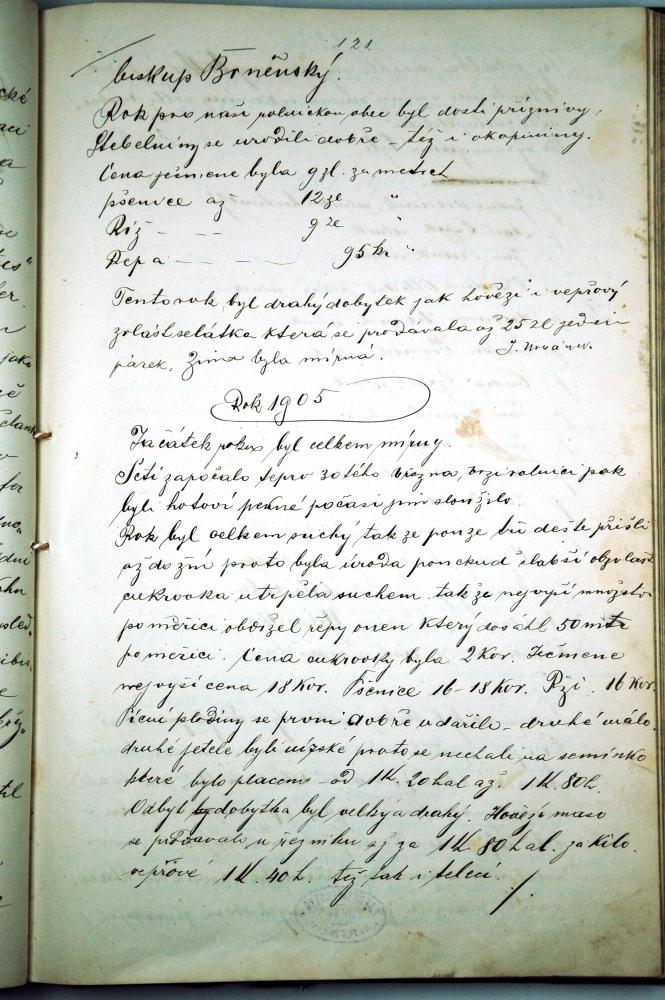 121
biskup Brněnský.
Rok pro naši rolnickou obec byl dosti příznivy,
Stebelniny se urodili dobře – též i okopaniny.
Cena ječmene byla 9 zl. za metrich
pšenice až 12 zl "
Ríž - - - 9 zl "
Řepa - - - 95 kr "
Tento rok byl drahý dobytek jak hovězí i vepřový
zvlášt selátka která se prodávala až 25 zl jeden
párek. Zima byla mírná. J. Novános.
Rok 1905
Začátek roku byl celkem mírny.
Setí započalo tepro 30tého března, brzi rolníci pak
byli hotoví pěkné počasí jim sloužilo.
Rok byl celkem suchý tak že pouze tři deště přišli
až do žní proto byla úroda poněkud slabší obzvlášt
cukrovka utrpěla suchem tak že nejvyší množství
po měřici obdržel řepy onen který dosáhl 50 mtr
po měřici. Cena cukrovky byla 2 Kor. Ječmene
nejvyší cena 18 Kor. Pšenice 16–18 Kor. Rži 16 Kor.
Pícní plodiny se první dobře udařili – druhé málo.
druhé jetele byli nízské proto se nechali na semínko
které bylo placeno – od 1 K. 20 hal až 1 K. 80 h.
Odbyt dobytka byl velký a drahý. Hovězí maso
se prodávalo u řezníku až za 1 K 80 hal. za Kilo.
vepřové 1 K. 40 h. též tak i telecí. /.